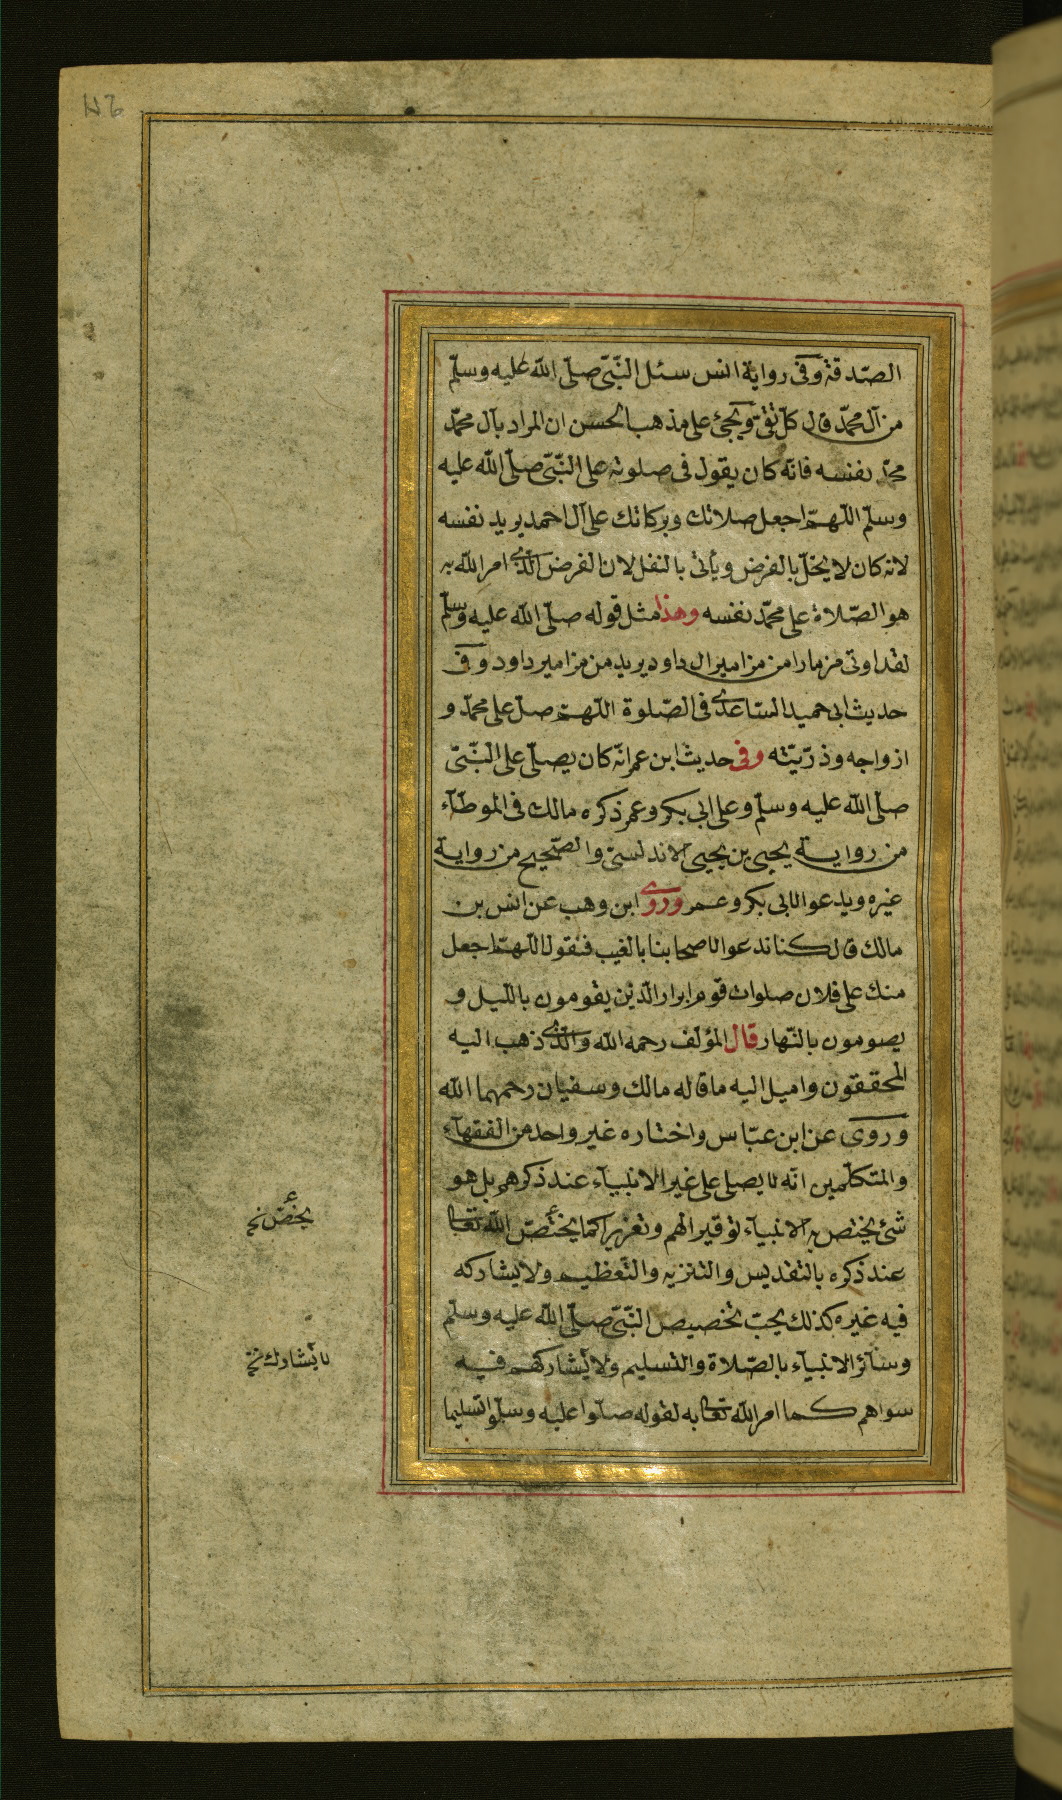 الصّدقة وفى رواية انس سئل النّبىّ صلّى اللّه عليه وسلّم
من آل محمّد قال كلّ تقىّ ويجئ على مذهب الحسن ان المراد بآل محمّد
محمّد نفسه فانّه كان يقول فى صلوته على النّبىّ صلّى اللّه عليه
وسلّم اللّهمّ اجعل صلاتك وبركاتك على آل احمد يريد نفسه
لانه كان لا يخلّ بالفرض ويأتى بالنفل لان الفرض الّذى امر اللّه به
هو الصّلاة على محمّد نفسه وهذا مثل قوله صلّى اللّه عليه وسلّم
لقد اوتى مزمارا من مزامير ال داود يريد من مزامير داود وفى
حديث ابى حميد السّاعدى فى الصّلوة اللّهمّ صلّ على محمّد و
ازواجه وذرّيّته وفى حديث ابن عمر انّه كان يصلّى على النّبىّ
صلّى اللّه عليه وسلّم وعلى ابى بكر وعمر ذكره مالك فى الموطّآء
من رواية يحيى بن يحيى الاندلسىّ والصّحيح من رواية
غيره ويدعوا لابى بكر وعمر وروى ابن وهب عن انس بن
مالك قال كنا ندعوا لاصحابنا بالغيب فنقول اللّهمّ اجعل
منك على فلان صلوات قوم ابرار الّذين يقومون بالليل و
يصومون بالنّهار قال المؤلّف رحمه اللّه والّذى ذهب اليه
المحققون واميل اليه ما قاله مالك وسفيان رحمهما اللّه
وروى عن ابن عبّاس واختاره غير واحد من الفقهآء
والمتكلّمين انه لا يصلى على غير الانبيآء عند ذكرهم بل هو
شئ يختص به الانبيآء توقيرا لهم وتعزيرا كما يختصّ اللّه تعالى
عند ذكره بالتقديس والتنزيه والتّعظيم ولا يشاركه
فيه غيره كذلك يجبّ تخصيص النّبىّ صلّى اللّه عليه وسلّم
وسآئر الانبيآء بالصّلاة والتسليم ولا يشاركهم فيه
سواهم كما امر اللّه تعالى به لقوله صلّوا عليه وسلّموا تسليما
يخصّ نخ
لا يشارك نخ